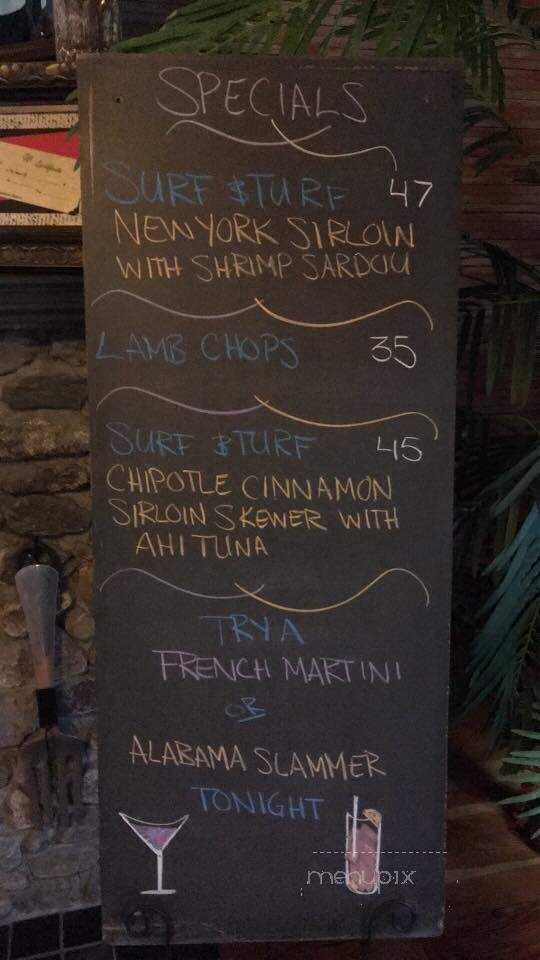 SPECIALS
SURF & TURF 47
NEW YORK SIRLOIN
WITH SHRIMP SARDOU
LAMB CHOPS 35
SURF & TURF 45
CHIPOTLE CINNAMON
SIRLOIN SKEWER WITH
AHI TUNA
TRY A
FRENCH MARTINI
OR
ALABAMA SLAMMER
TONIGHT
menupix